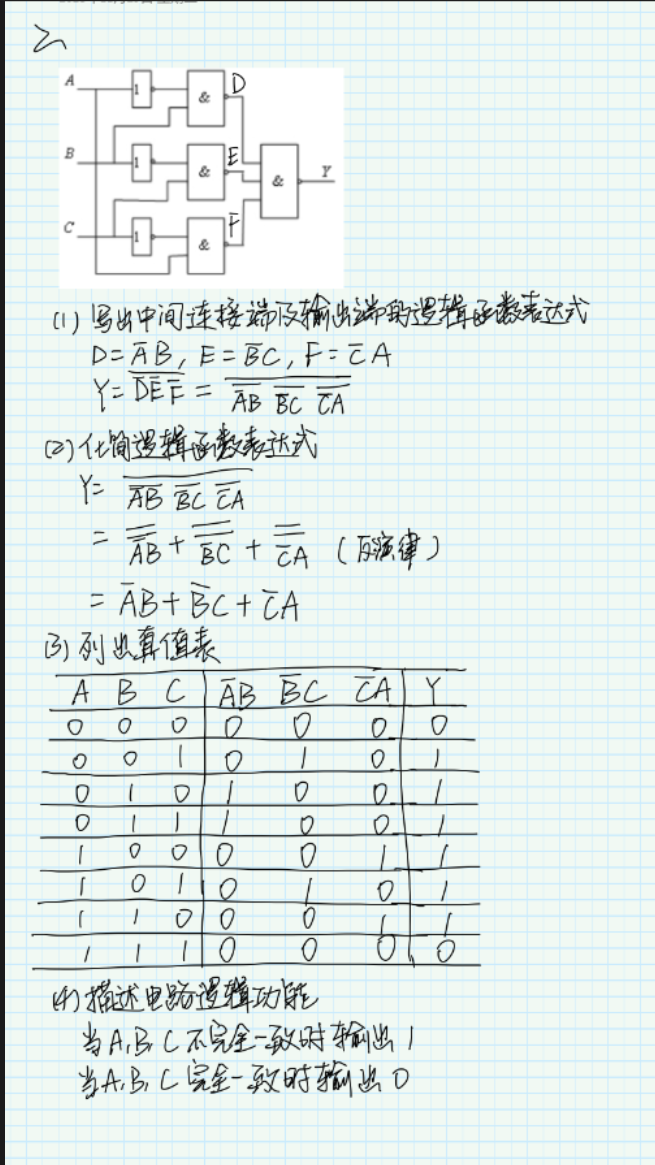 二、
A 1 & D
B 1 & E & Y
C 1 & F
(1) 写出中间连接端及输出端的逻辑函数表达式
D = A̅B, E = B̅C, F = C̅A
Y = \overline{D̅E̅F̅} = \overline{\overline{A̅B} \overline{B̅C} \overline{C̅A}}
(2) 化简逻辑函数表达式
Y = \overline{\overline{A̅B} \overline{B̅C} \overline{C̅A}}
= \overline{\overline{A̅B}} + \overline{\overline{B̅C}} + \overline{\overline{C̅A}} (反演律)
= A̅B + B̅C + C̅A
(3) 列出真值表
A B C A̅B B̅C C̅A Y
0 0 0 0 0 0 0
0 0 1 0 1 0 1
0 1 0 1 0 0 1
0 1 1 1 0 0 1
1 0 0 0 0 1 1
1 0 1 0 1 0 1
1 1 0 0 0 1 1
1 1 1 0 0 0 0
(4) 描述电路逻辑功能
当A, B, C 不完全一致时输出 1
当A, B, C 完全一致时输出 0